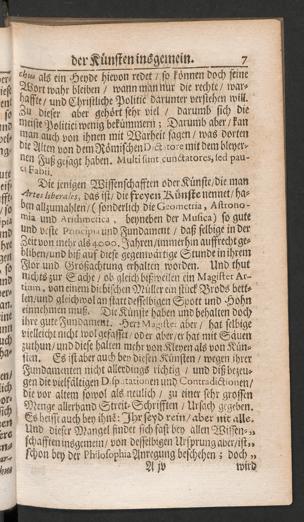 der Künsten insgemein. 7
thus als ein Heyde hievon redet / so können doch seine
Wort wahr bleiben / wann man nur die rechte / war-
haffte / und Christliche Politic darunter verstehen will.
Zu dieser aber gehört sehr viel / darumb sich die
meiste Politici wenig bekümmern; Darumb aber / kan
man auch von ihnen mit Warheit sagen / was dorten
die Alten von dem Römischen Dictatore mit dem bleyer-
nen Fuß gesagt haben. Multi sunt cunctatores, sed pau-
ci Fabii.
Die jenigen Wissenschafften oder Künste / die man
Artes liberales, das ist / die freyen Künste nennet / ha-
ben allzumahlen / (sonderlich die Geometria, Astrono-
mia und Arithmetica, beyneben der Musica) so gute
und veste Principia und Fundament / daß selbige in der
Zeit von mehr als 4000. Jahren / immerhin auffrecht ge-
blieben / und biß auff diese gegenwärtige Stunde in ihrem
Flor und Großachtung erhalten worden. Und thut
nichts zur Sache / ob gleich bißweilen ein Magister Ar-
tium, von einem diebischen Müller ein stück Brods bett-
len / und gleichwol anstatt desselbigen Spott und Hohn
einnehmen muß. Die Künste haben und behalten doch
ihre gute Fundament. Herr Magister aber / hat selbige
vielleicht nicht wol gefasst / oder aber er hat mit Säuen
zuthun / und diese halten mehr von Kleyen als von Kün-
sten. Es ist aber auch bey diesen Künsten / wegen ihrer
Fundamenten nicht allerdings richtig / und diß bezeu-
gen die vielfältigen Disputationen und Contradictionen /
die vor altem sowol als neulich / zu einer sehr grossen
Menge allerhand Streit-Schrifften / Ursach gegeben.
Es heisst auch bey ihnē: Ihr seyd rein / aber nit alle.
Und dieser Mangel findet sich fast bey allen Wissen-„
schafften insgemein / von desselbigen Ursprung aber / ist„
schon bey der Philosophia Anregung beschehen; doch „
A iv wird